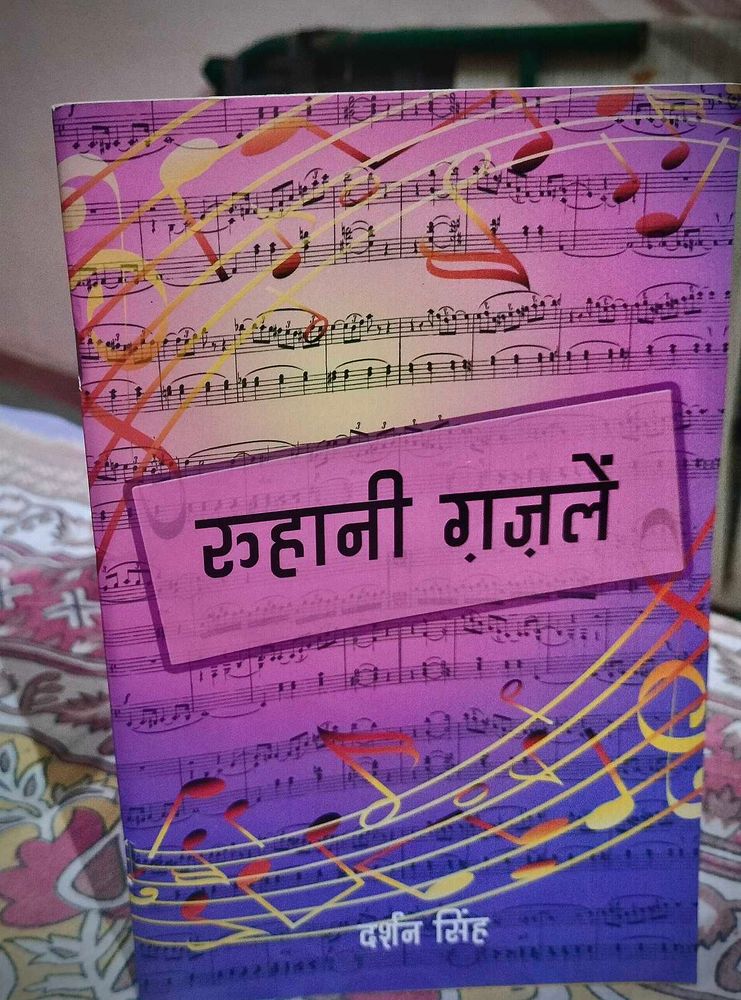 रुहानी ग़ज़लें
दर्शन सिंह